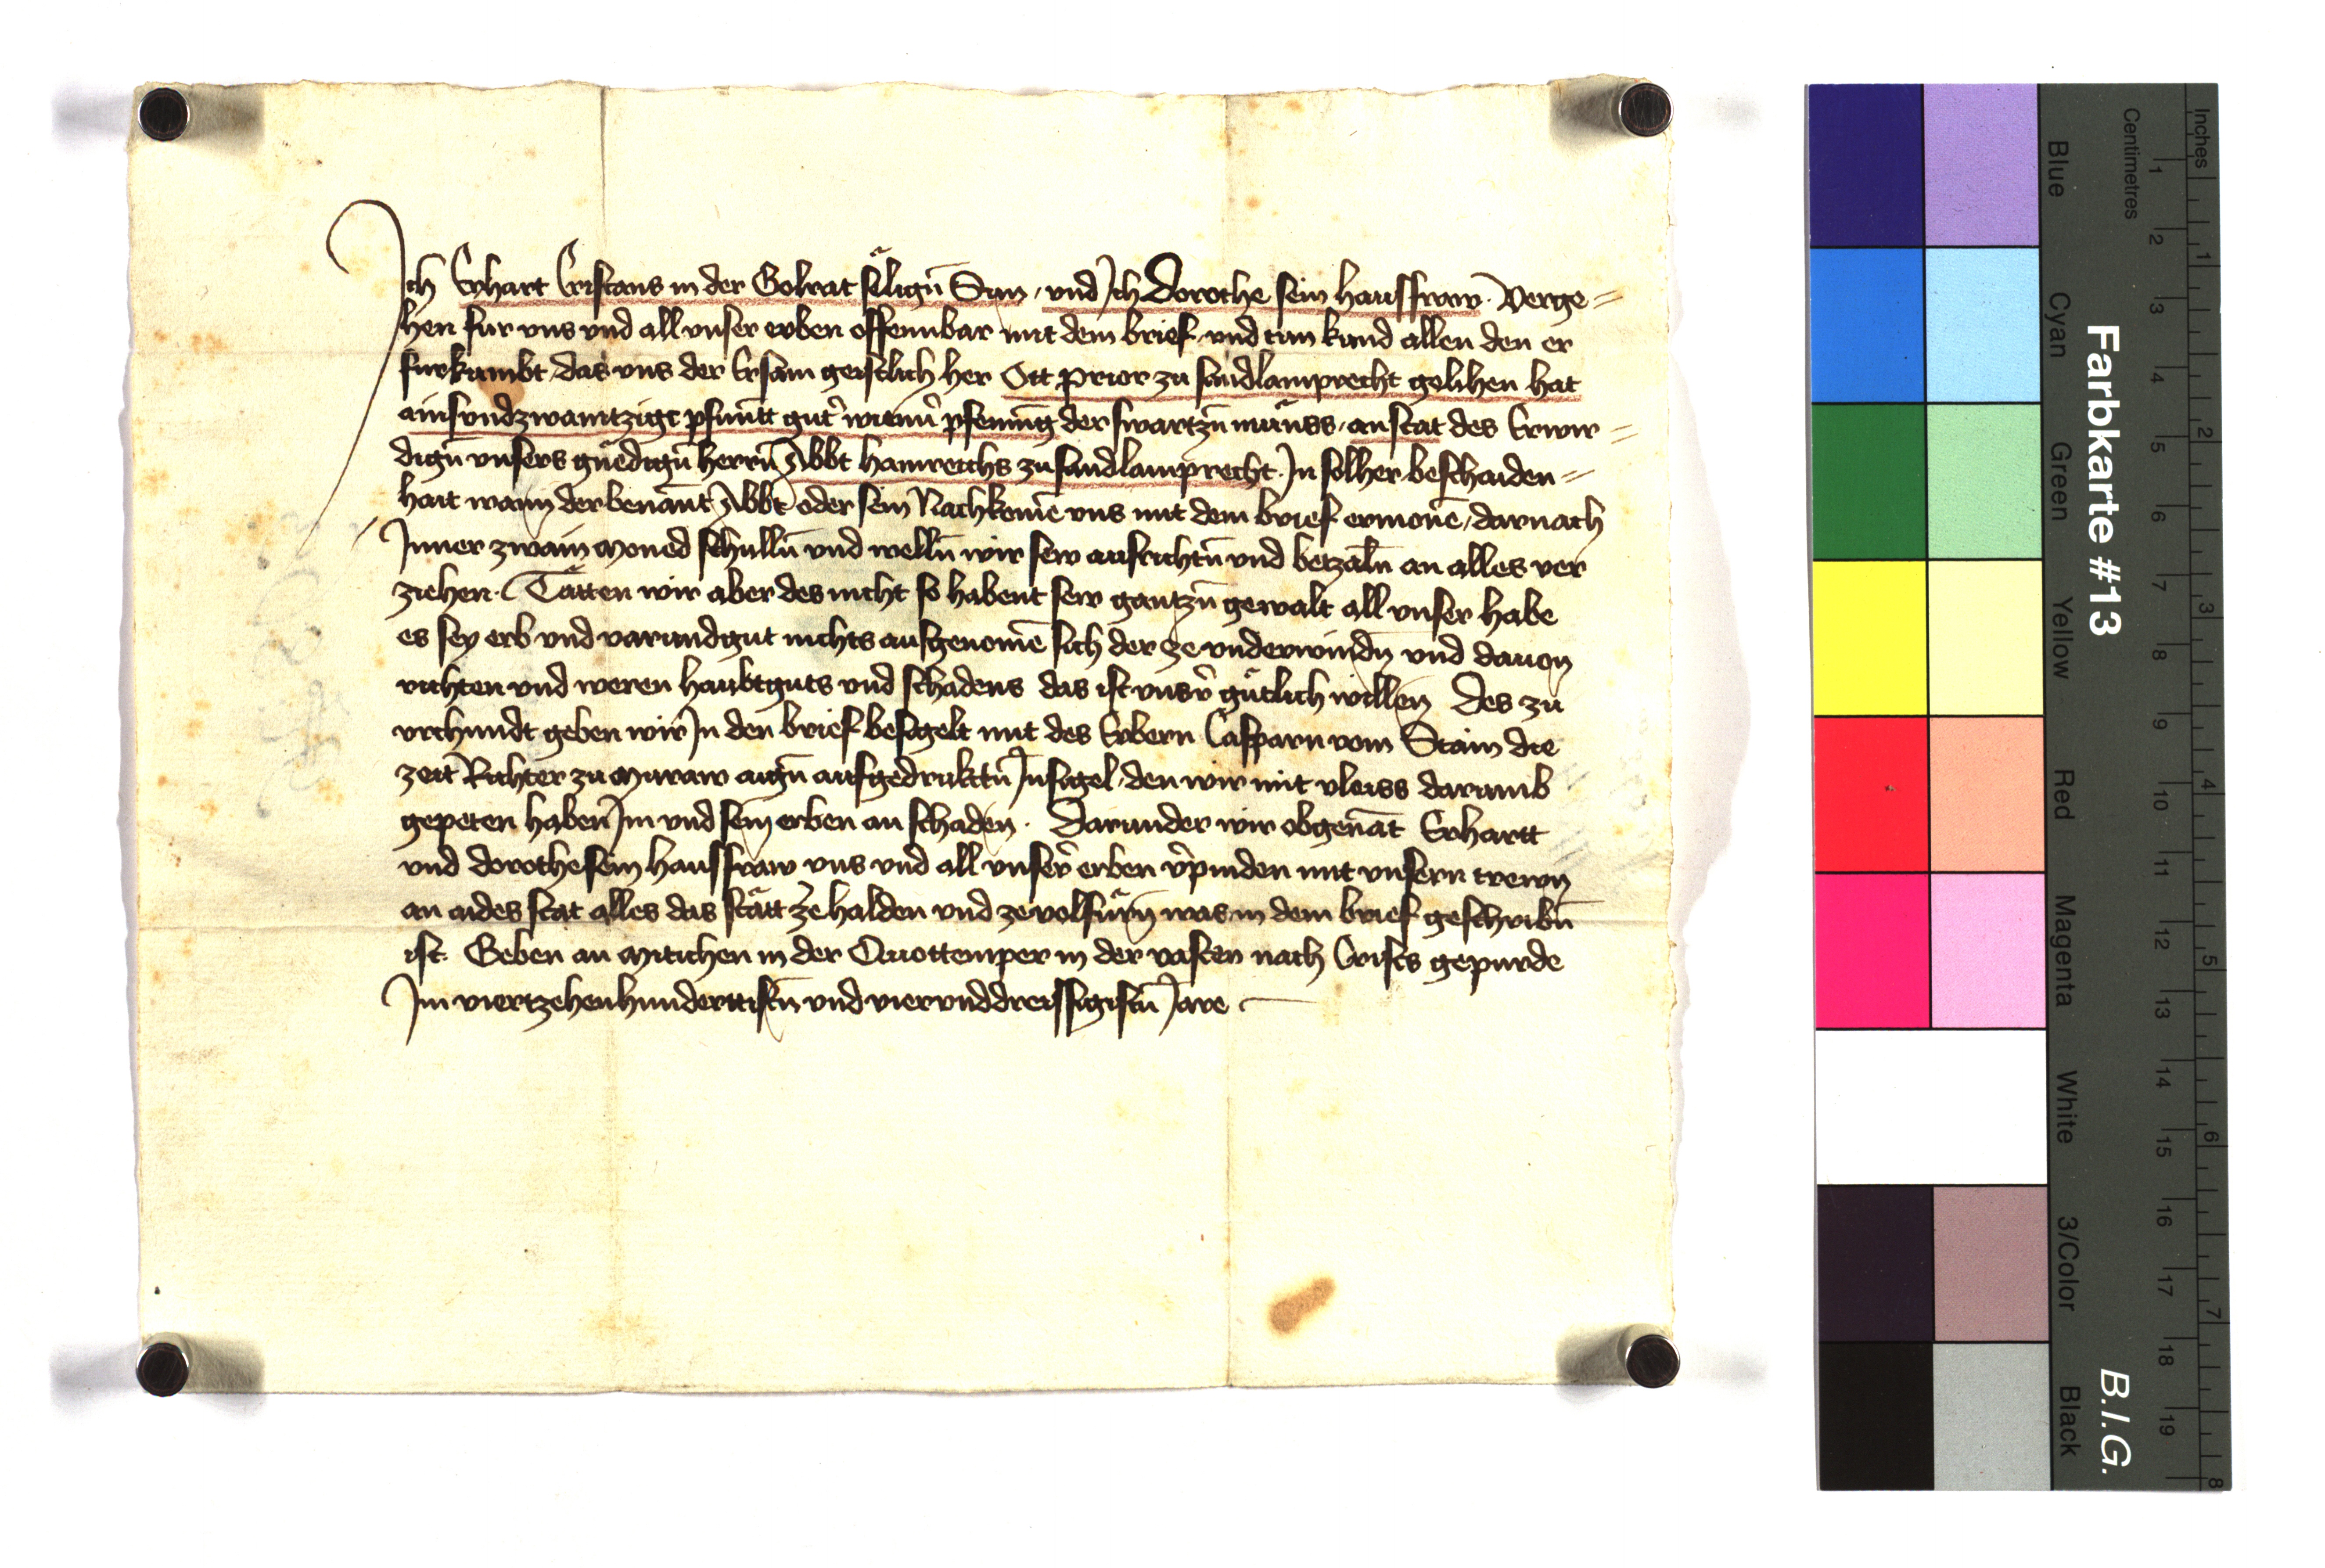 Ich Erhart Cristans in der Golrat säligñ Sun / und Ich Dorothe sein hausfraw. Verge=
hen fur uns und all unser erben offennbar mit dem brief und tun kund allen den er
furkumbt, das uns der Ersam geistlich her Ott prior zu sandlamprecht gelihen hat
ainsundzwaintzigt phuntt gut' wienn' phening der swartzñ münss, anstat des Erwir=
digñ unsers gnëdigñ herrñ Abbt hainreichs zu sandlamprecht. In solher beschaiden=
hait wann der benant Abbt oder sein Nachkomē uns mit dem brief ermonē, darnach
Inner zwain moned schullñ und wellñ wir sew ausrichtñ und betzalñ an alles ver
ziehen. Tätten wir aber des nicht so habent sew gantzñ gewalt all unser habe
es sey erb und varundgut nichts ausgenomē sich der ze underwindñ und dauon
richten und weren haubtguts und schadens das ist uns' gütlich willen Des zu
urchundt geben wir In den brief besigelt mit des Erbern Casparn vom Stain die
zeit Richter zu Muraw aigñ aufgedrukktñ Insigel, den wir mit vleiss darumb
gepeten haben Im und sein erben an schaden. Darunder wir obgenāt Erhartt
und dorothe sein hausfraw uns und all unser' erben v'pinden mit unsern trewn
an aides stat alles das stätt ze halden und ze volfürñ was in dem brief geschribñ
ist. Geben an Mitichen in der Quottemper in der vasten nach Crists gepurde
Im viertzehenhunderttistñ und vierunddreissigistñ Jare
Farbkarte #13
B.I.G.
Centimetres
Inches
Blue
Cyan
Green
Yellow
Red
Magenta
White
3/Color
Black
1 2 3 4 5 6 7 8 9 10 11 12 13 14 15 16 17 18 19
1 2 3 4 5 6 7 8